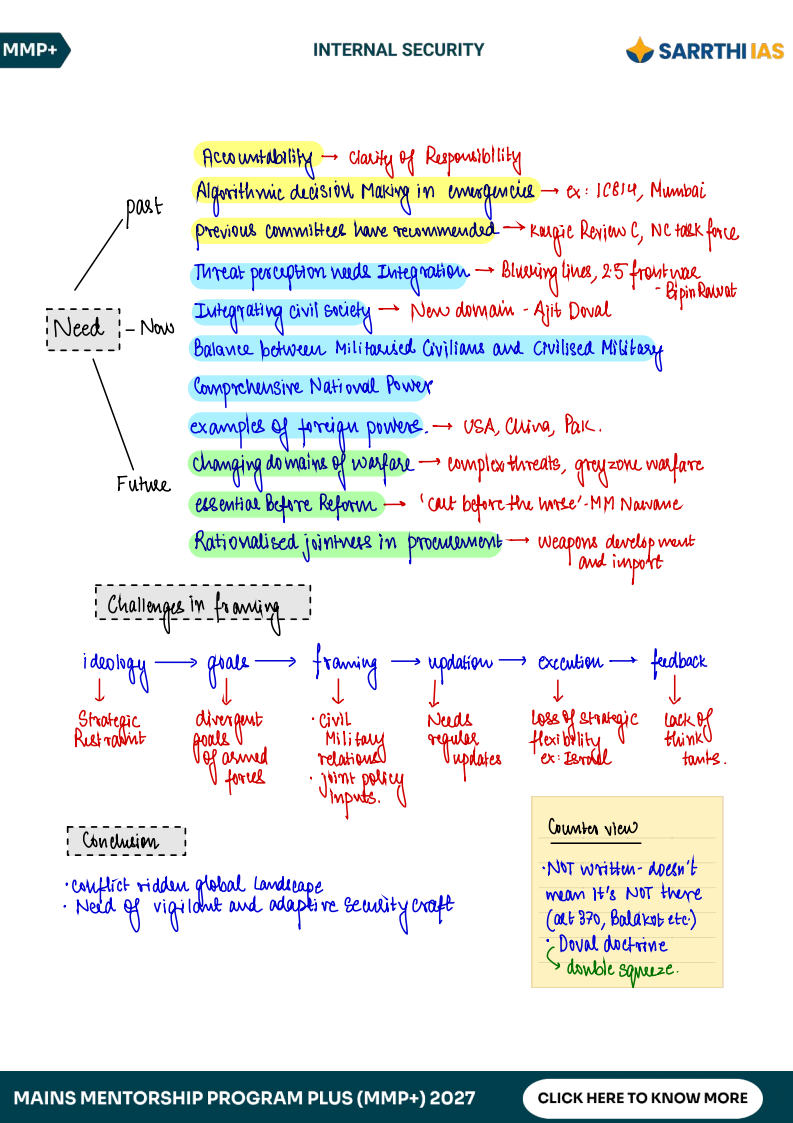 MMP+
INTERNAL SECURITY
SARRTHI IAS
Need
past
Accountability → Clarity of Responsibility
Algorithmic decision Making in emergencies → ex: IC814, Mumbai
previous committees have recommended → Kargil Review C, NC task force
Now
Threat perception needs Integration → Blurring lines, 2.5 front war
- Bipin Rawat
Integrating civil society → New domain - Ajit Doval
Balance between Militarised Civilians and Civilised Military
Comprehensive National Power
examples of foreign powers. → USA, China, Pak.
Future
changing domains of warfare → complex threats, greyzone warfare
essential Before Reform → 'cart before the horse' - MM Naravane
Rationalised jointness in procurement → weapons development
and import
Challenges in framing
ideology → goals → framing → updation → execution → feedback
Strategic
Restraint
divergent
goals
of armed
forces
· Civil
Military
relations
· joint policy
inputs.
Needs
regular
updates
loss of strategic
flexibility
ex: Israel
lack of
think
tanks.
Conclusion
· conflict ridden global landscape
· Need of vigilant and adaptive security craft
Counter view
· NOT written - doesn't
mean it's NOT there
(art 370, Balakot etc.)
· Doval doctrine
↳ double squeeze.
MAINS MENTORSHIP PROGRAM PLUS (MMP+) 2027
CLICK HERE TO KNOW MORE